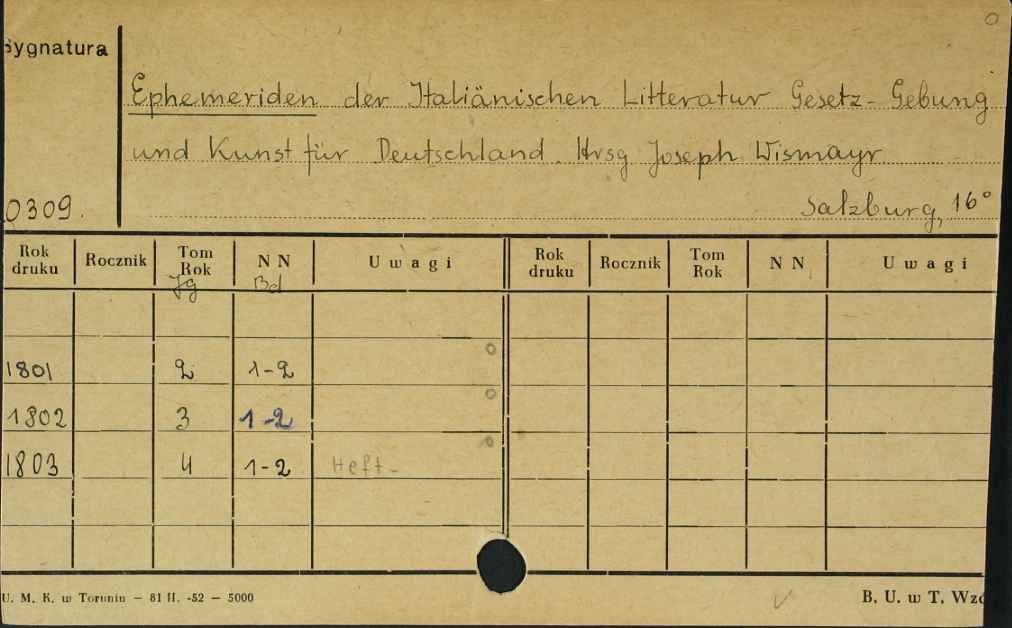 Sygnatura
Ephemeriden der Italiänischen Litteratur Gesetz-Gebung
und Kunst für Deutschland. Hrsg Joseph Wismayr
0309.
Salzburg, 16°
Rok druku Rocznik Tom Rok NN Uwagi Rok druku Rocznik Tom Rok NN Uwagi
Jg Bd
1801 2 1-2
1802 3 1-2
1803 4 1-2 Heft-
U. M. K. w Toruniu — 81 II. -52 — 5000
B. U. w T. Wzó